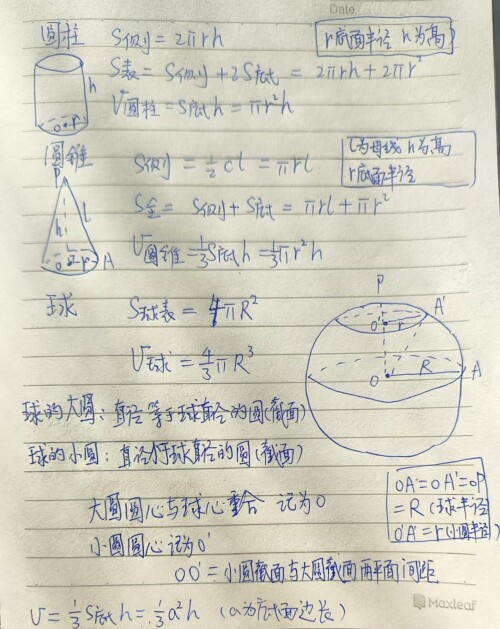 Date.
圆柱 S侧=2πrh
r底面半径 h为高
S表=S侧+2S底=2πrh+2πr²
V圆柱=S底h=πr²h
h
O r
圆锥 S侧=½cl=πrl
l为母线 h为高
r底面半径
P
S全=S侧+S底=πrl+πr²
h l
O r A
V圆锥=⅓S底h=⅓πr²h
球 S球表=4πR²
P
O' r A'
V球=4/3πR³
O R A
球的大圆:直径等于球直径的圆(截面)
球的小圆:直径小于球直径的圆(截面)
OA=OA'=OP
=R(球半径
O'A'=r(小圆半径)
大圆圆心与球心重合 记为O
小圆圆心记为O'
OO'=小圆截面与大圆截面两平面间距
V=⅓S底h=⅓a²h (a为底面边长)
Maxleaf